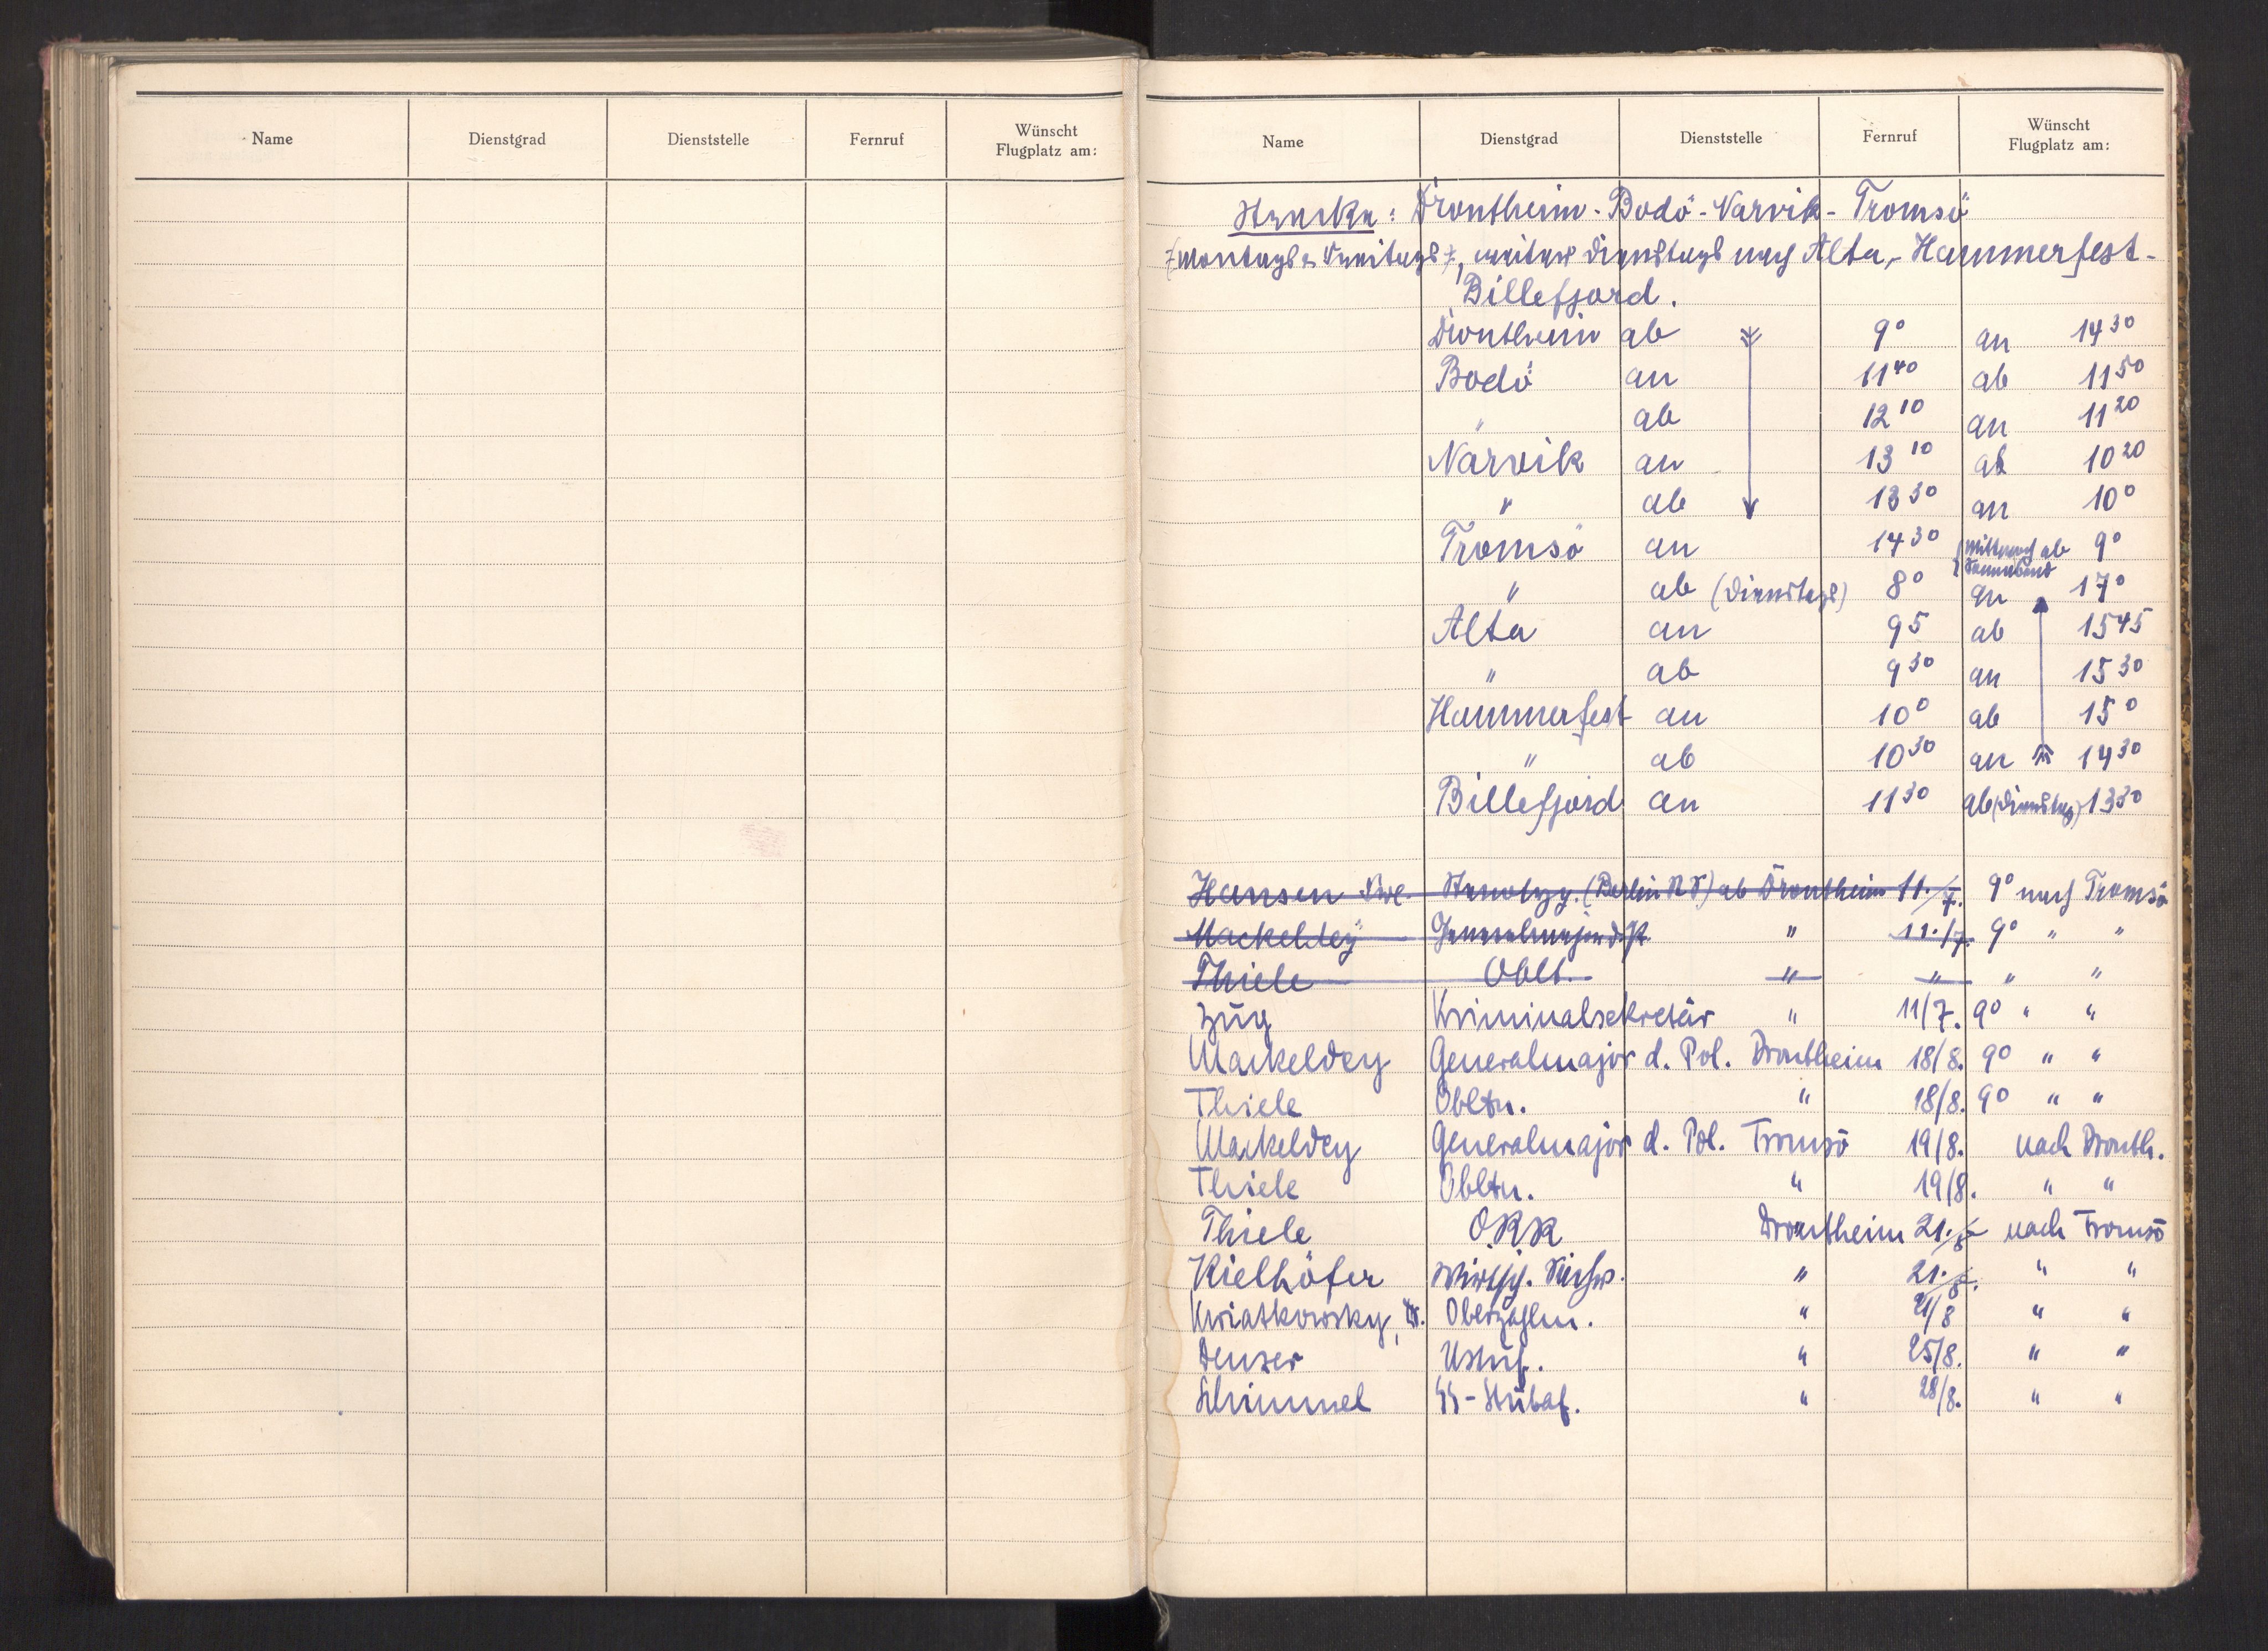 Name Dienstgrad Dienststelle Fernruf Wünscht Flugplatz am:
Name Dienstgrad Dienststelle Fernruf Wünscht Flugplatz am:
Strecke: Drontheim - Bodö - Narvik - Tromsö
(Montags & Freitags), weiter Dienstags nach Alta, Hammerfest -
Billefjord.
Drontheim ab 9⁰ an 14³⁰
Bodö an 11⁴⁰ ab 11⁵⁰
" ab 12¹⁰ an 11²⁰
Narvik an 13¹⁰ ab 10²⁰
" ab 13³⁰ an 10⁰
Tromsö an 14³⁰ (Mittwoch ab 9⁰
Sonnabend
" ab (Dienstags) 8⁰ an 17⁰
Alta an 9⁵ ab 15⁴⁵
" ab 9³⁰ an 15³⁰
Hammerfest an 10⁰ ab 15⁰
" ab 10³⁰ an 14³⁰
Billefjord an 11³⁰ ab (Dienstag) 13³⁰
Hansen Frl. Stenotyp. (Berlin ) ab Drontheim 11./7. 9⁰ nach Tromsö
Mackeldey Generalmajor d. P. " 11./7. 9⁰ " "
Thiele Oblt. " " " "
Zug Kriminalsekretär " 11/7. 9⁰ " "
Mackeldey Generalmajor d. Pol. Drontheim 18/8. 9⁰ " "
Thiele Obltn. " 18/8. 9⁰ " "
Mackeldey Generalmajor d. Pol. Tromsö 19/8. nach Dronth.
Thiele Obltn. " 19/8. " "
Thiele OKR Drontheim 21./8. nach Tromsö
Kielhöfer Wirtsch. " 21./8. " "
Kwiatkowsky, Oberzahlm. " 21/8 " "
Denzer Ustuf. " 25/8. " "
Schimmel SS-Stubaf. " 28/8. " "